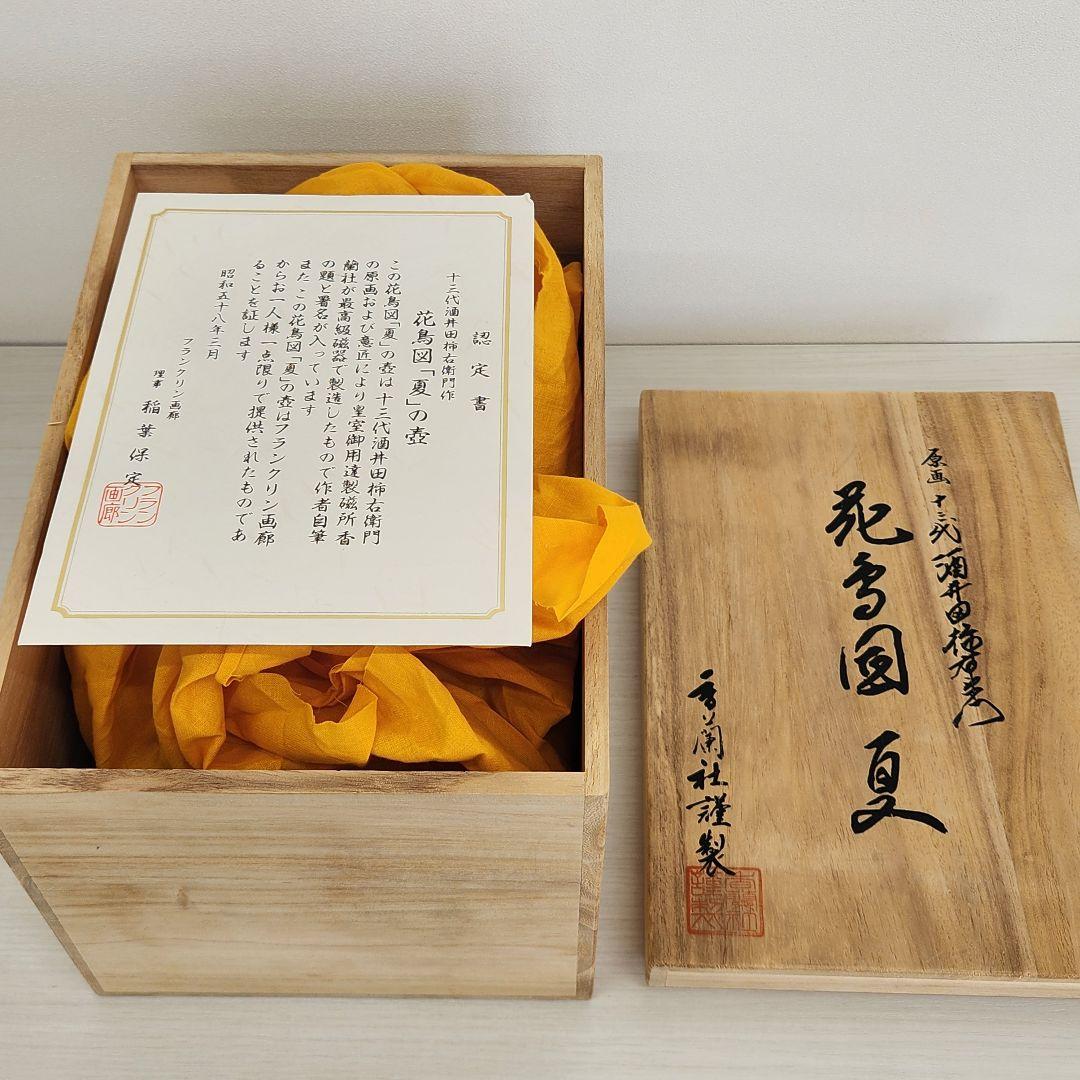 認定書
十三代酒井田柿右衛門作
花鳥図「夏」の壺
この花鳥図「夏」の壺は十三代酒井田柿右衛門
の原画および意匠により皇室御用達製磁所香
蘭社が最高級磁器で製造したもので作者自筆
の題と署名が入っています
また この花鳥図「夏」の壺はフランクリン画廊
からお一人様一点限りで提供されたものであ
ることを証します
昭和五十八年三月
フランクリン画廊
理事 稲葉保定
フランクリン画廊
原画 十三代 酒井田柿右衛門
花鳥図 夏
香蘭社謹製